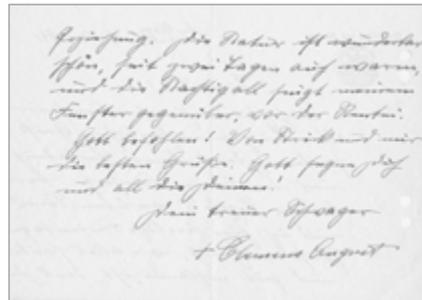 Erziehung. Die Natur ist wunderbar
schön, seit zwei Tagen auch warm,
und die Nachtigall singt meinem
Fenster gegenüber, vor der Rentei.
Gott befohlen! Von Strick und mir
die besten Grüße. Gott segne Dich
und all die Deinen!
Dein treuer Schwager
+ Clemens August